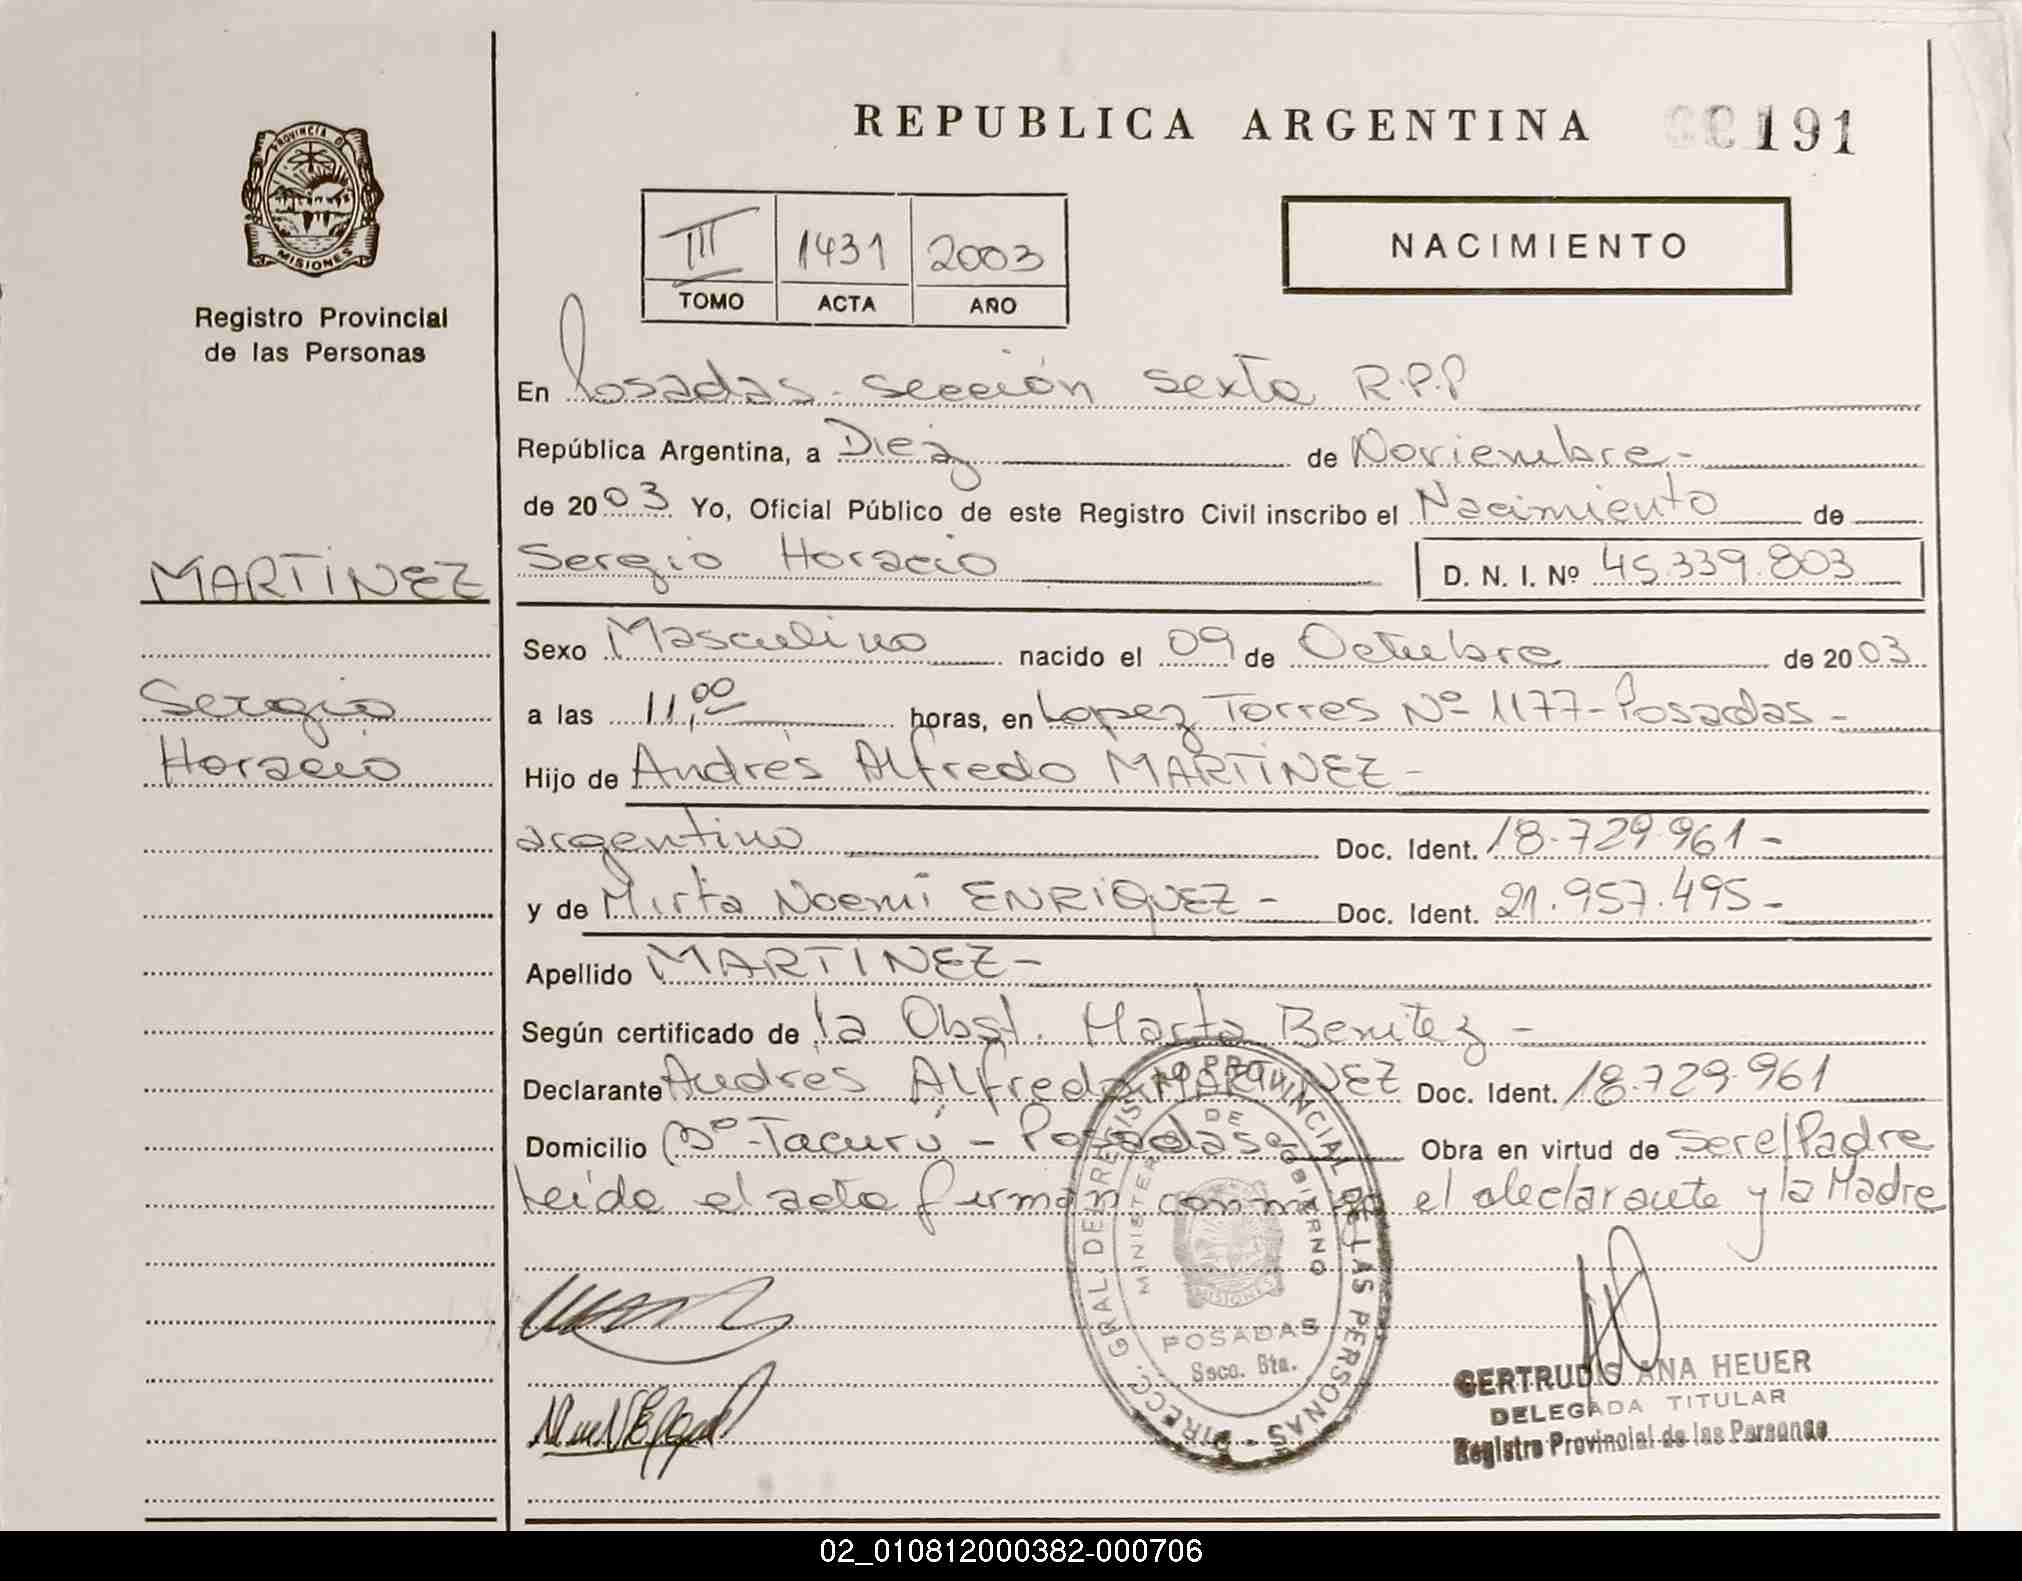 REPUBLICA ARGENTINA 00191
PROVINCIA DE
MISIONES
Registro Provincial
de las Personas
III 1431 2003
TOMO ACTA AÑO
NACIMIENTO
En Posadas - Sección Sexta R.P.P
República Argentina, a Diez de Noviembre -
de 2003 Yo, Oficial Público de este Registro Civil inscribo el Nacimiento de
MARTINEZ
Sergio Horacio D. N. I. Nº 45.339.803
Sexo Masculino nacido el 09 de Octubre de 2003
Sergio
Horacio
a las 11,00 horas, en Lopez Torres Nº 1177 - Posadas -
Hijo de Andrés Alfredo MARTINEZ -
argentino Doc. Ident. 18.729.961 -
y de Mirta Noemi ENRIQUEZ - Doc. Ident. 21.957.495 -
Apellido MARTINEZ -
Según certificado de la Obst. Marta Benitez -
Declarante Andrés Alfredo MARTINEZ Doc. Ident. 18.729.961
Domicilio Bº - Tacurú - Posadas Obra en virtud de ser el Padre
Leida el acta firman conmigo el declarante y la Madre
DIRECC. GRAL. DEL REGISTRO PROVINCIAL DE LAS PERSONAS -
MINISTERIO DE GOBIERNO
MISIONES
POSADAS
Secc. 6ta.
GERTRUDIS ANA HEUER
DELEGADA TITULAR
Registro Provincial de las Personas
02_010812000382-000706